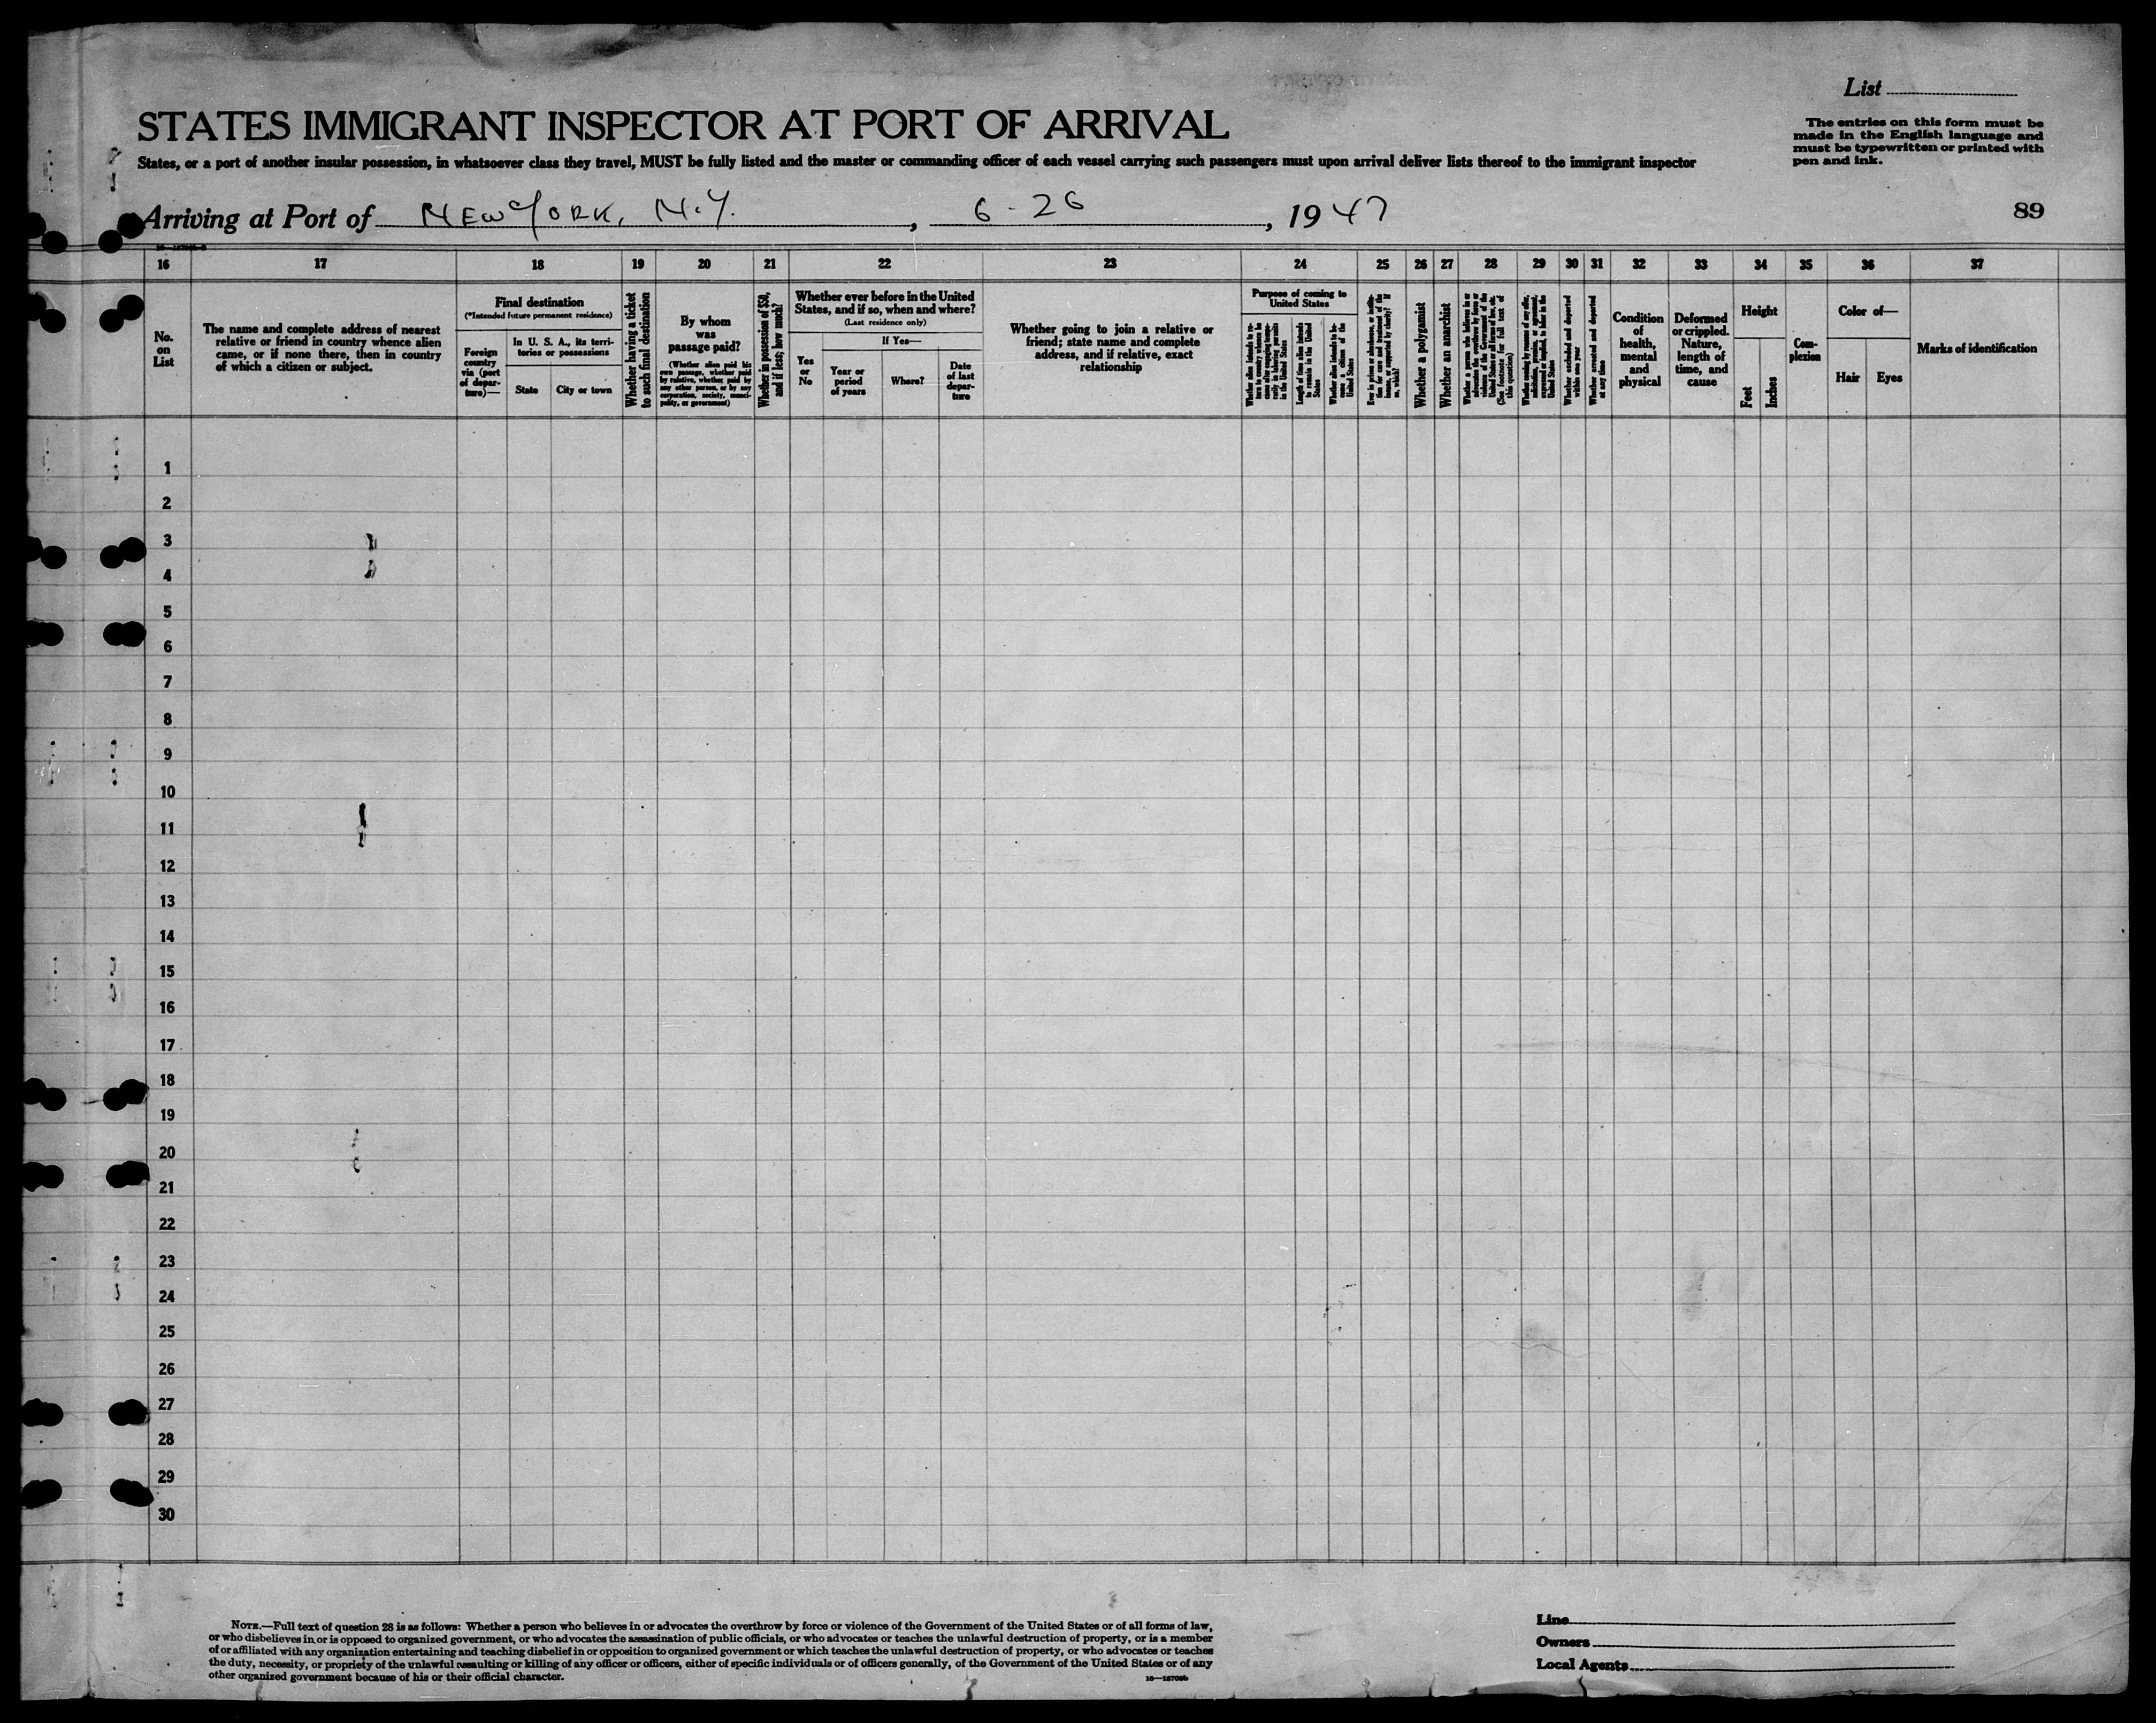 List
STATES IMMIGRANT INSPECTOR AT PORT OF ARRIVAL
The entries on this form must be
made in the English language and
must be typewritten or printed with
pen and ink.
States, or a port of another insular possession, in whatsoever class they travel, MUST be fully listed and the master or commanding officer of each vessel carrying such passengers must upon arrival deliver lists thereof to the immigrant inspector
Arriving at Port of NEW YORK, N.Y. , 6-26 , 1947
89
16 17 18 19 20 21 22 23 24 25 26 27 28 29 30 31 32 33 34 35 36 37
No.
on
List
The name and complete address of nearest
relative or friend in country whence alien
came, or if none there, then in country
of which a citizen or subject.
Final destination
(*Intended future permanent residence)
Foreign
country
via (port
of depar-
ture)—
In U. S. A., its terri-
tories or possessions
State
City or town
Whether having a ticket
to such final destination
By whom
was
passage paid?
(Whether alien paid his
own passage, whether paid
by relative, whether paid by
any other person, or by any
corporation, society, munici-
pality, or government)
Whether in possession of $50,
and if less, how much?
Whether ever before in the United
States, and if so, when and where?
(Last residence only)
Yes
or
No
If Yes—
Year or
period
of years
Where?
Date
of last
depar-
ture
Whether going to join a relative or
friend; state name and complete
address, and if relative, exact
relationship
Purpose of coming to
United States
Length of time alien intends
to remain in the United
States
Whether alien intends to be-
come a citizen of the
United States
Whether a polygamist
Whether an anarchist
Whether excluded and deported
within one year
Whether arrested and deported
at any time
Condition
of
health,
mental
and
physical
Deformed
or crippled.
Nature,
length of
time, and
cause
Height
Feet
Inches
Com-
plexion
Color of—
Hair
Eyes
Marks of identification
1
2
3
4
5
6
7
8
9
10
11
12
13
14
15
16
17
18
19
20
21
22
23
24
25
26
27
28
29
30
NOTE.—Full text of question 28 is as follows: Whether a person who believes in or advocates the overthrow by force or violence of the Government of the United States or of all forms of law,
or who disbelieves in or is opposed to organized government, or who advocates the assassination of public officials, or who advocates or teaches the unlawful destruction of property, or is a member
of or affiliated with any organization entertaining and teaching disbelief in or opposition to organized government or which teaches the unlawful destruction of property, or who advocates or teaches
the duty, necessity, or propriety of the unlawful assaulting or killing of any officer or officers, either of specific individuals or of officers generally, of the Government of the United States or of any
other organized government because of his or their official character.
Line
Owners
Local Agents